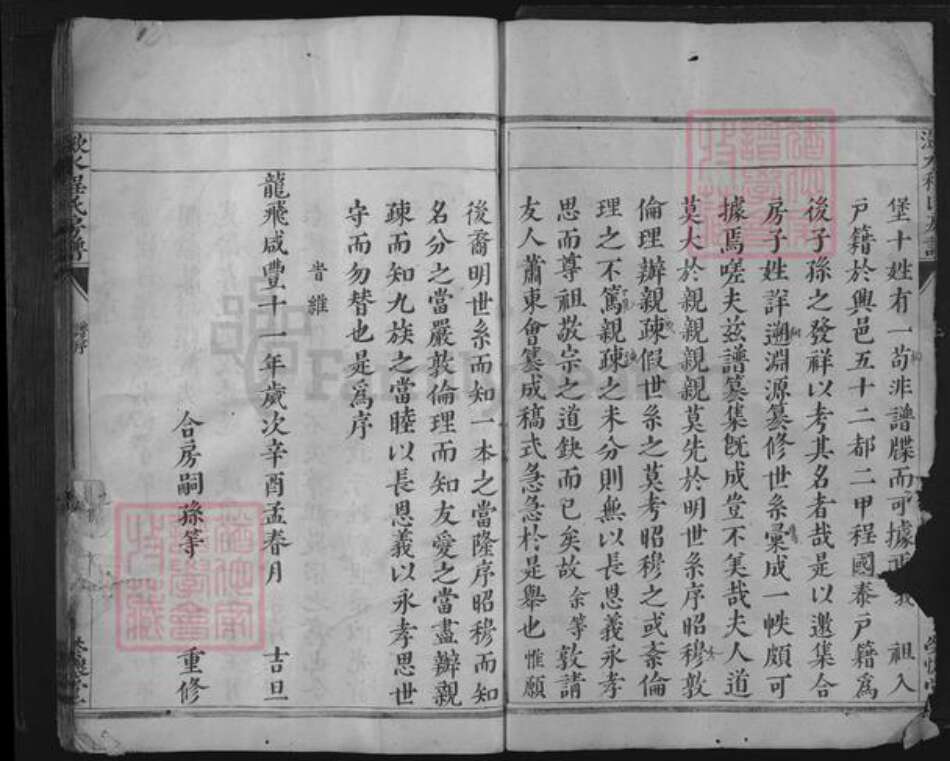 堡十姓有一苟非譜牒而可據 祖入
戶籍於興邑五十二都二甲程國泰戶籍爲
後子孫之發祥以考其名者哉是以邀集合
房子姓詳遡淵源纂修世系彙成一帙頗可
據焉嗟夫茲譜纂集既成豈不美哉夫人道
莫大於親親親親莫先於明世系序昭穆敦
倫理辦親疎假世系之莫考昭穆之或紊倫
理之不篤親疎之未分則無以長恩義永孝
思而尊祖敬宗之道鈌而已矣故余等敦請
友人蕭東會纂成稿式急急於是舉也惟願
後裔明世系而知一本之當隆序昭穆而知
名分之當嚴敦倫理而知友愛之當盡辦親
疎而知九族之當睦以長恩義以永孝思世
守而勿替也是爲序
旹維
龍飛咸豐十一年歲次辛酉孟春月 吉旦
合房嗣孫等 重修
程氏房譜